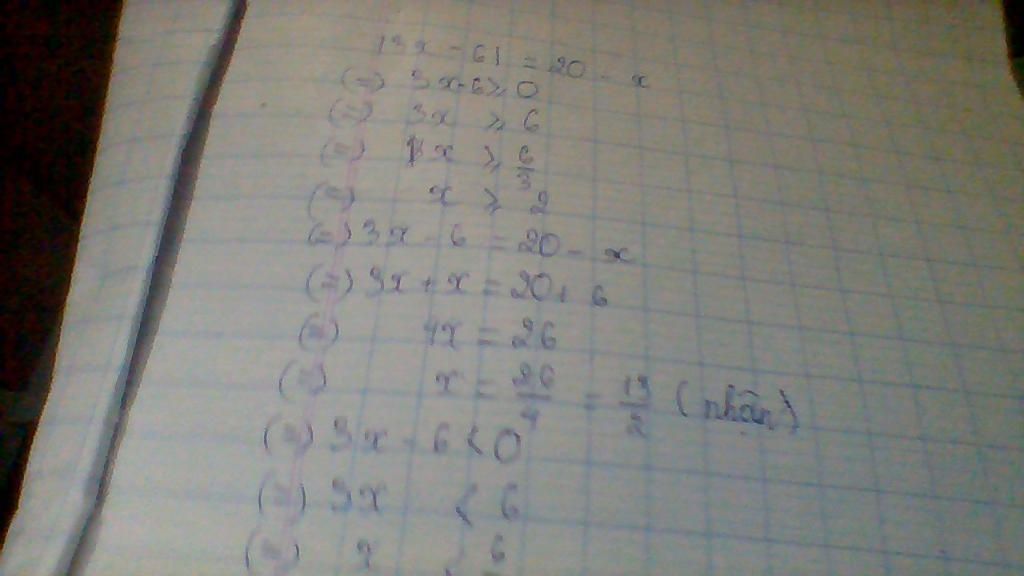 |3x - 6| = 20 - x
(=) 3x - 6 ≥ 0
(=) 3x ≥ 6
(=) x ≥ 6/3
(=) x ≥ 2
(=) 3x - 6 = 20 - x
(=) 3x + x = 20 + 6
(=) 4x = 26
(=) x = 26/4 = 13/2 (nhận)
(=) 3x - 6 < 0
(=) 3x < 6
(=) x 6